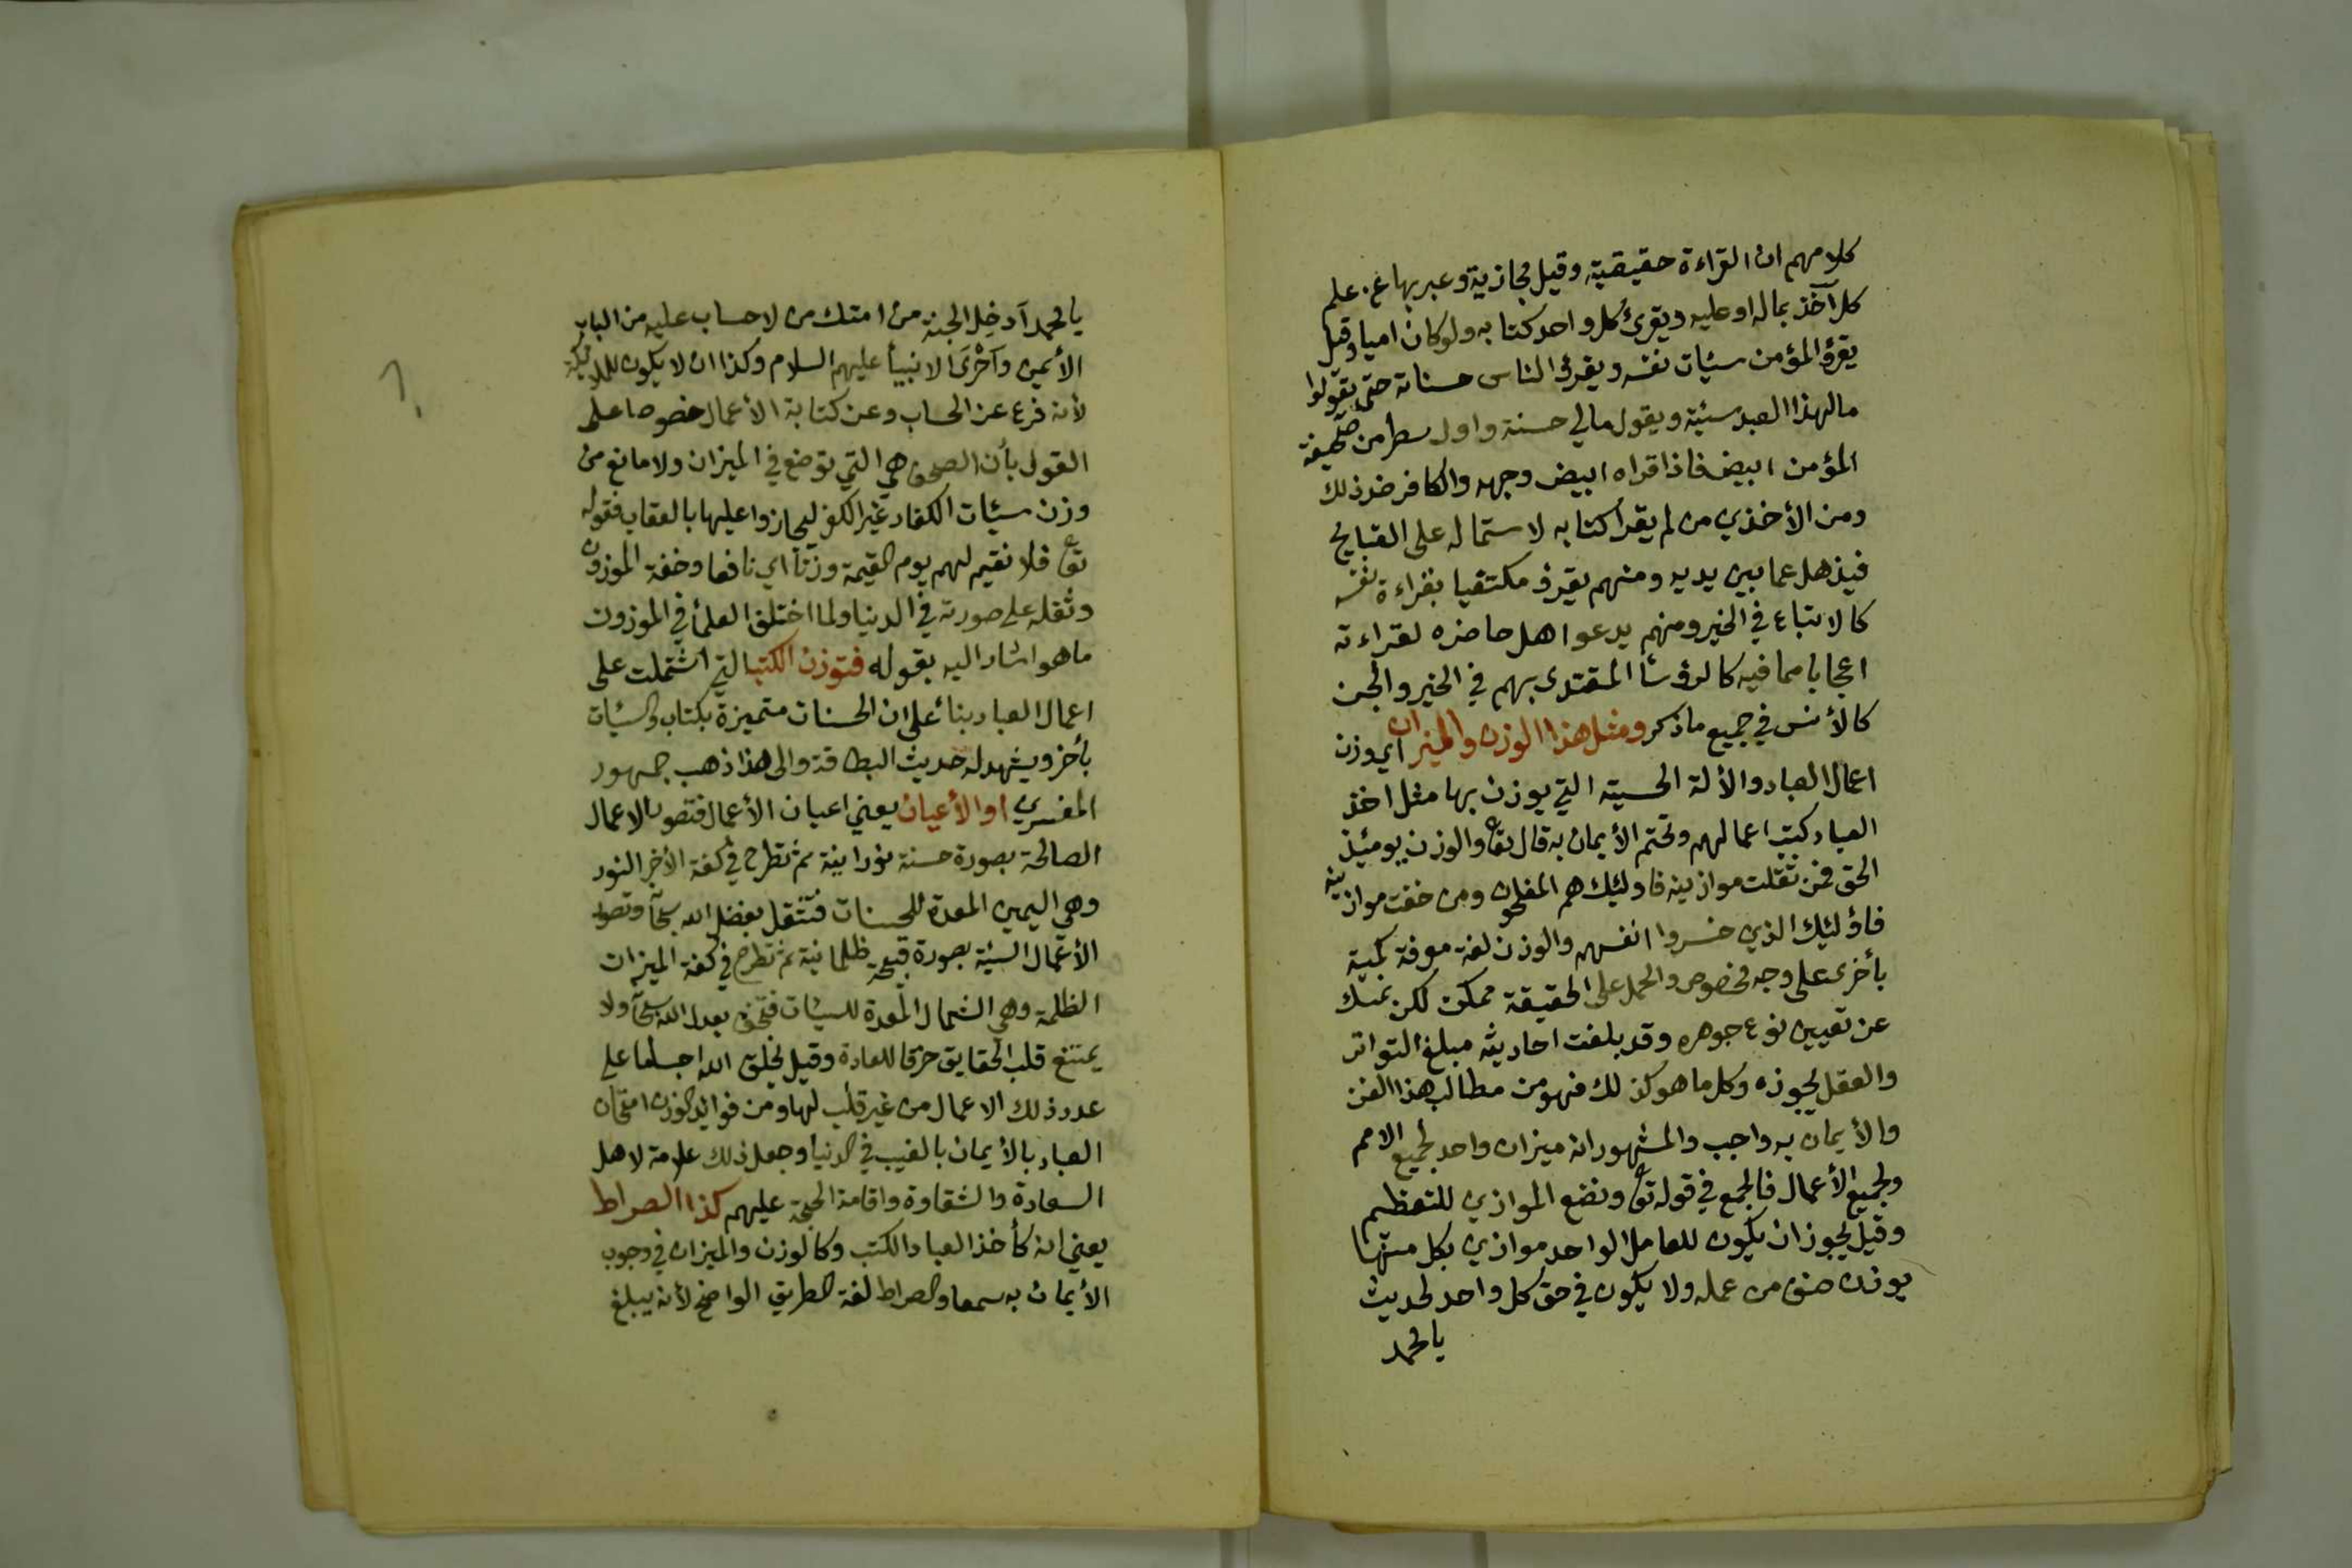 كلامهم ان القراءة حقيقية وقيل مجازية وعبر بها عن علم
كل آخذ بماله او عليه ويقرئ كل واحد كتابه ولو كان اميا وقيل
يقرؤ المؤمن سيئات نفسه ويقرؤ الناس حسناته حتى يقولوا
مالهذا العبد سيئة ويقول مالي حسنة واول سطر من صحيفة
المؤمن ابيض فاذا قراه ابيض وجهه والكافر ضد ذلك
ومن الأخذين من لم يقرأ كتابه لاستماله على القبايح
فيذهل عما بين يديه ومنهم يقرؤ مكتفيا بقراءة نفسه
كالاتباع في الخير ومنهم يدعوا اهل حاضره لقراءته
اعجابا مما فيه كالرؤسأ المقتدى بهم في الخير والجن
كالأنس في جميع ماذكر ومثل هذا الوزن والميزان اي وزن
اعمال العباد والألة الحسية التي يوزن بها مثل اخذ
العباد كتب اعمالهم وتحتم الأيمان به قال تع والوزن يومئيذ
الحق فمن ثقلت موازينه فاوليئك هم المفلحون ومن خفت موازينه
فاؤلئيك الذين خسروا انفسهم والوزن لغة معرفة كمية
بأخرى على وجه مخصوص والحمل على الحقيقة ممكن لكن نمسك
عن تعيين نوع جوهره وقد بلغت احاديثه مبلغ التواتر
والعقل يجوزه وكل ما هو كذلك فهو من مطالب هذا الفن
والأيمان به واجب والمشهور انه ميزان واحد لجميع الامم
ولجميع الأعمال فالجمع في قوله تع ونضع الموازين للتعظيم
وقيل يجوز ان يكون للعامل الواحد موازين بكل منها
يوزن صنف من عمله ولا يكون في حق كل واحد لحديث
يا محمد
يا محمد آدخل الجنة من امتك من لا حساب عليه من الباب
الأيمن وآحْرَى الانبيأ عليهم السلام وكذا ان لا يكون للملائيكة
لأنه فرع عن الحساب وعن كتابة الأعمال خصوصا على
القول بأن الصحف هي التي توضع في الميزان ولا مانع من
وزن سيئات الكفار غير الكفر ليجازوا عليها بالعقاب فقوله
تع فلا نقيم لهم يوم القيمة وزنا اي نافعا وخفة الموزون
وثقله على صورته في الدنيا ولما اختلف العلمأ في الموزون
ما هو اشار اليه بقوله فتوزن الكتب التي اشتملت على
اعمال العباد بنائا على ان الحسنات متميزة بكتاب والسيئات
بأخر ويشهد له حديث البطاقة والى هذا ذهب جمهور
المفسرين او الأعيان يعني اعيان الأعمال فتصور الاعمال
الصالحة بصورة حسنة نورانية ثم تطرح في كفة الأخر النور
وهي اليمين المعدة للحسنات فتثقل بفضل الله سبحآ وتصور
الأعمال السيئة بصورة قبيحة ظلمانية ثم تطرح في كفة الميزان
الظلمة وهي الشمال المعدة للسيئات فتخف بعدل الله سبحآ ولا
يمتنع قلب الحقايق خرقا للعادة وقيل يخلق الله اجساما على
عدد ذلك الاعمال من غير قلب لها ومن فوائد الوزن امتحان
العباد بالأيمان بالغيب في الدنيا وجعل ذلك علامة لاهل
السعادة والشقاوة واقامة الحجة عليهم كذا الصراط
يعني انه كأخذ العباد الكتب وكالوزن والميزان في وجوب
الأيمان به سمعا والصراط لغة الطريق الواضح لأنه يبلغ